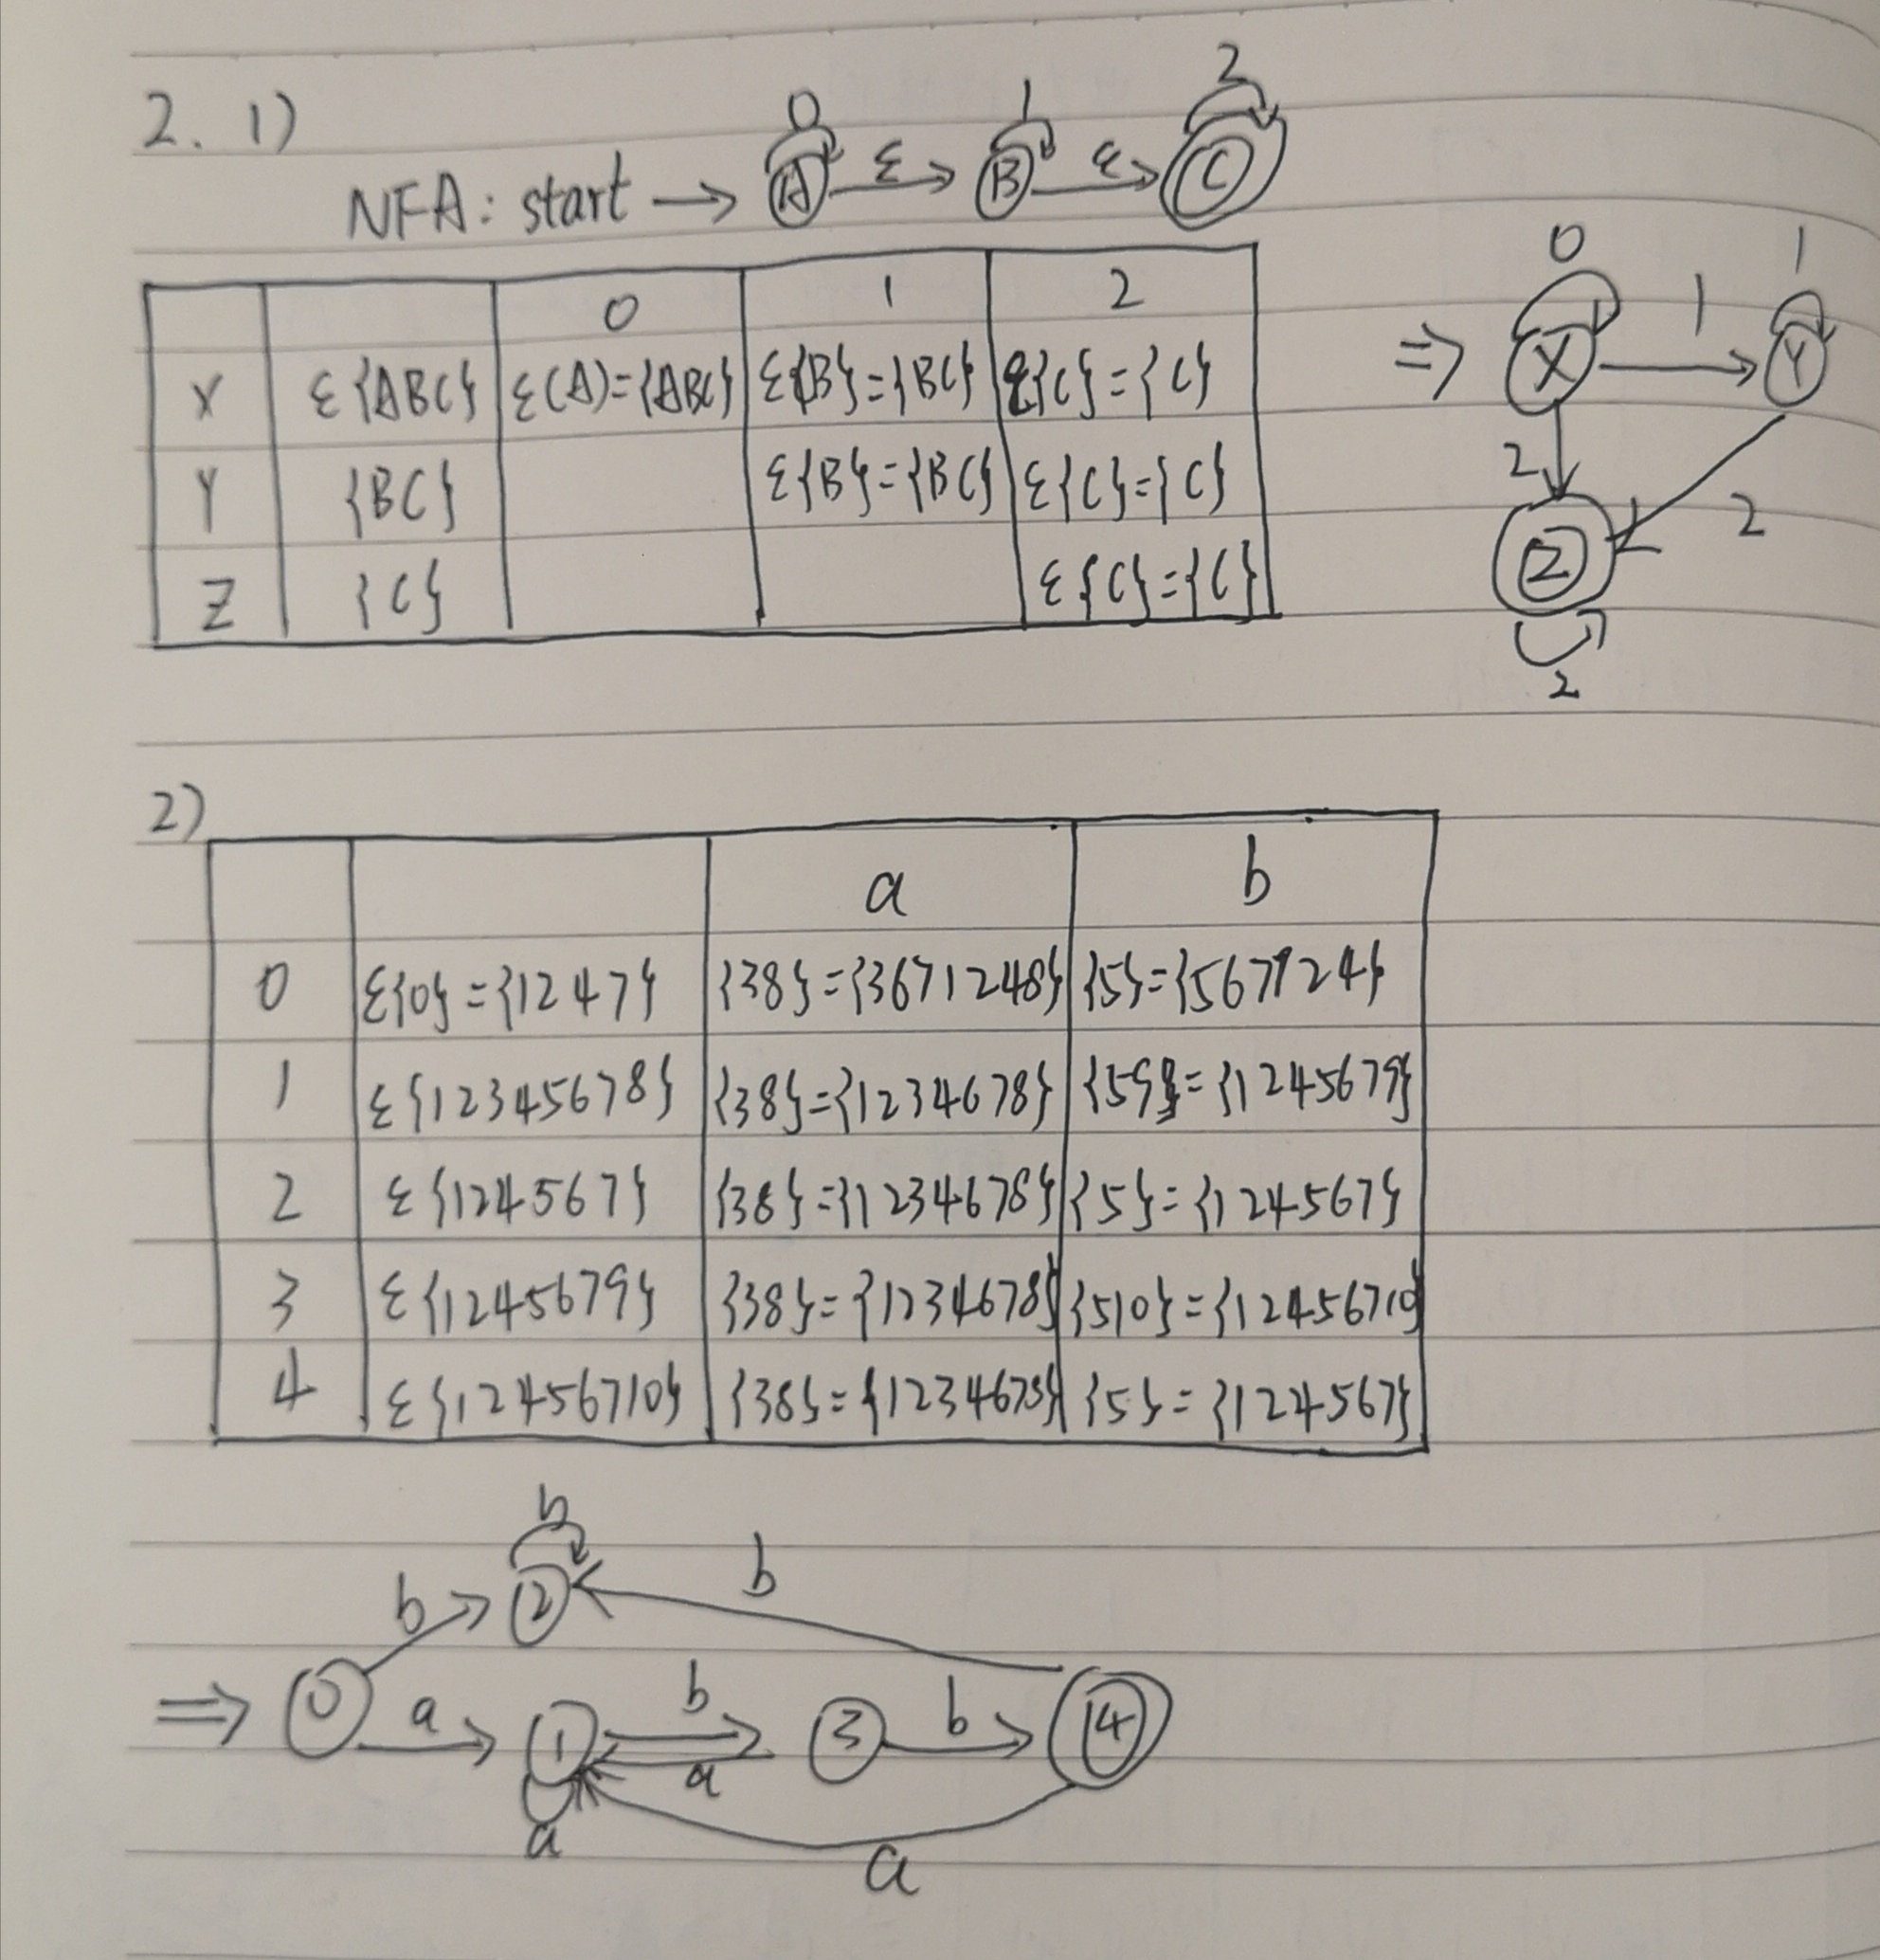 2. 1)
0 1 2
NFA: start → A ε B ε C
0 1 2
X ε{ABC} ε(A)={ABC} ε{B}={BC} ε{C}={C}
Y {BC} ε{B}={BC} ε{C}={C}
Z {C} ε{C}={C}
0 1
⇒ X 1 Y
2 2
Z
2
2)
a b
0 ε{0}={1247} {38}={3671248} {5}={567124}
1 ε{12345678} {38}={1234678} {59}={1245679}
2 ε{124567} {38}={1234678} {5}={124567}
3 ε{1245679} {38}={1234678} {510}={12456710}
4 ε{12456710} {38}={1234678} {5}={124567}
b
b 2 b
⇒ 0 a 1 b 3 b 4
a
a a